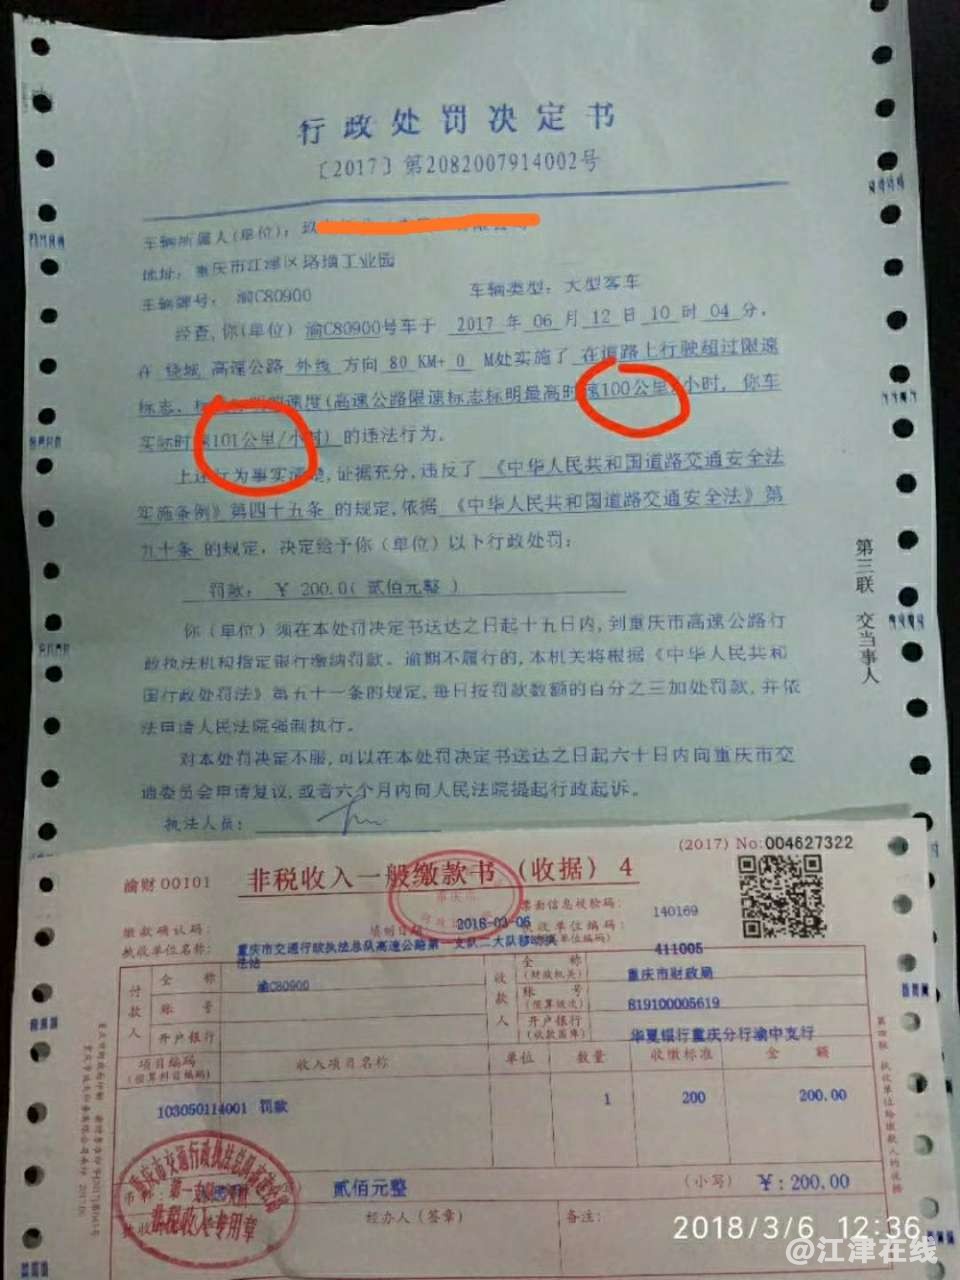 行政处罚决定书
〔2017〕第2082007914002号
车辆所属人(单位):
地址: 重庆市江津区珞璜工业园
车辆牌号: 渝C80900 车辆类型: 大型客车
经查,你(单位) 渝C80900号车于 2017 年 06 月 12 日 10 时 04 分,
在 绕城 高速公路 外线 方向 80 KM+ 0 M处实施了 在道路上行驶超过限速
标志、标线标明的速度(高速公路限速标志标明最高时速100公里/小时, 你车
实际时速101公里/小时) 的违法行为。
上述行为事实清楚,证据充分,违反了 《中华人民共和国道路交通安全法
实施条例》第四十五条 的规定,依据 《中华人民共和国道路交通安全法》第
九十条 的规定, 决定给予你(单位)以下行政处罚:
罚款: ¥ 200.0( 贰佰元整 )
你(单位)须在本处罚决定书送达之日起十五日内,到重庆市高速公路行
政执法机构指定银行缴纳罚款。逾期不履行的,本机关将根据《中华人民共和
国行政处罚法》第五十一条的规定,每日按罚款数额的百分之三加处罚款,并依
法申请人民法院强制执行。
对本处罚决定不服,可以在本处罚决定书送达之日起六十日内向重庆市交
通委员会申请复议,或者六个月内向人民法院提起行政起诉。
执法人员:
第三联 交当事人
(2017) No:004627322
渝财00101 非税收入一般缴款书(收据)4
票面信息校验码: 140169
缴款确认码: 填制日期 2018-03-06 执收单位编码: 411005
执收单位名称: 重庆市交通行政执法总队高速公路第一支队二大队移动执
法站
付款人 全称 渝C80900
账号
开户银行
收款人 全称(财政机关) 重庆市财政局
账号(预算级次) 819100005619
开户银行(收款国库) 华夏银行重庆分行渝中支行
项目编码(预算科目编码) 收入项目名称 单位 数量 收缴标准 金额
103050114001 罚款 1 200 200.00
贰佰元整 (小写) ¥:200.00
经办人(签章) 备注:
重庆市交通行政执法总队高速公路
第一支队
非税收入专用章
2018/3/6 12:36
@江津在线